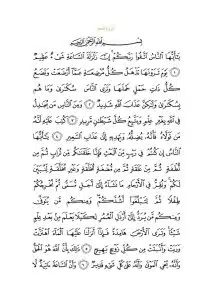 بِسْمِ ٱللَّهِ ٱلرَّحْمَٰنِ ٱلرَّحِيمِ
يَٰٓأَيُّهَا ٱلنَّاسُ ٱتَّقُوا۟ رَبَّكُمْ إِنَّ زَلْزَلَةَ ٱلسَّاعَةِ شَىْءٌ عَظِيمٌ
١ يَوْمَ تَرَوْنَهَا تَذْهَلُ كُلُّ مُرْضِعَةٍ عَمَّآ أَرْضَعَتْ وَتَضَعُ
كُلُّ ذَاتِ حَمْلٍ حَمْلَهَا وَتَرَى ٱلنَّاسَ سُكَٰرَىٰ وَمَا هُم
بِسُكَٰرَىٰ وَلَٰكِنَّ عَذَابَ ٱللَّهِ شَدِيدٌ ٢ وَمِنَ ٱلنَّاسِ مَن يُجَٰدِلُ
فِى ٱللَّهِ بِغَيْرِ عِلْمٍ وَيَتَّبِعُ كُلَّ شَيْطَٰنٍ مَّرِيدٍ ٣ كُتِبَ عَلَيْهِ أَنَّهُۥ
مَن تَوَلَّاهُ فَأَنَّهُۥ يُضِلُّهُۥ وَيَهْدِيهِ إِلَىٰ عَذَابِ ٱلسَّعِيرِ ٤ يَٰٓأَيُّهَا
ٱلنَّاسُ إِن كُنتُمْ فِى رَيْبٍ مِّنَ ٱلْبَعْثِ فَإِنَّا خَلَقْنَٰكُم مِّن تُرَابٍ ثُمَّ مِن
نُّطْفَةٍ ثُمَّ مِنْ عَلَقَةٍ ثُمَّ مِن مُّضْغَةٍ مُّخَلَّقَةٍ وَغَيْرِ مُخَلَّقَةٍ لِّنُبَيِّنَ
لَكُمْ وَنُقِرُّ فِى ٱلْأَرْحَامِ مَا نَشَآءُ إِلَىٰٓ أَجَلٍ مُّسَمًّى ثُمَّ نُخْرِجُكُمْ
طِفْلًا ثُمَّ لِتَبْلُغُوٓا۟ أَشُدَّكُمْ وَمِنكُم مَّن يُتَوَفَّىٰ
وَمِنكُم مَّن يُرَدُّ إِلَىٰٓ أَرْذَلِ ٱلْعُمُرِ لِكَيْلَا يَعْلَمَ مِنۢ بَعْدِ عِلْمٍ
شَيْـًٔا وَتَرَى ٱلْأَرْضَ هَامِدَةً فَإِذَآ أَنزَلْنَا عَلَيْهَا ٱلْمَآءَ ٱهْتَزَّتْ
وَرَبَتْ وَأَنۢبَتَتْ مِن كُلِّ زَوْجٍۭ بَهِيجٍ ٥ ذَٰلِكَ بِأَنَّ ٱللَّهَ هُوَ ٱلْحَقُّ
وَأَنَّهُۥ يُحْىِ ٱلْمَوْتَىٰ وَأَنَّهُۥ عَلَىٰ كُلِّ شَىْءٍ قَدِيرٌ ٦ وَأَنَّ ٱلسَّاعَةَ ءَاتِيَةٌ لَّا